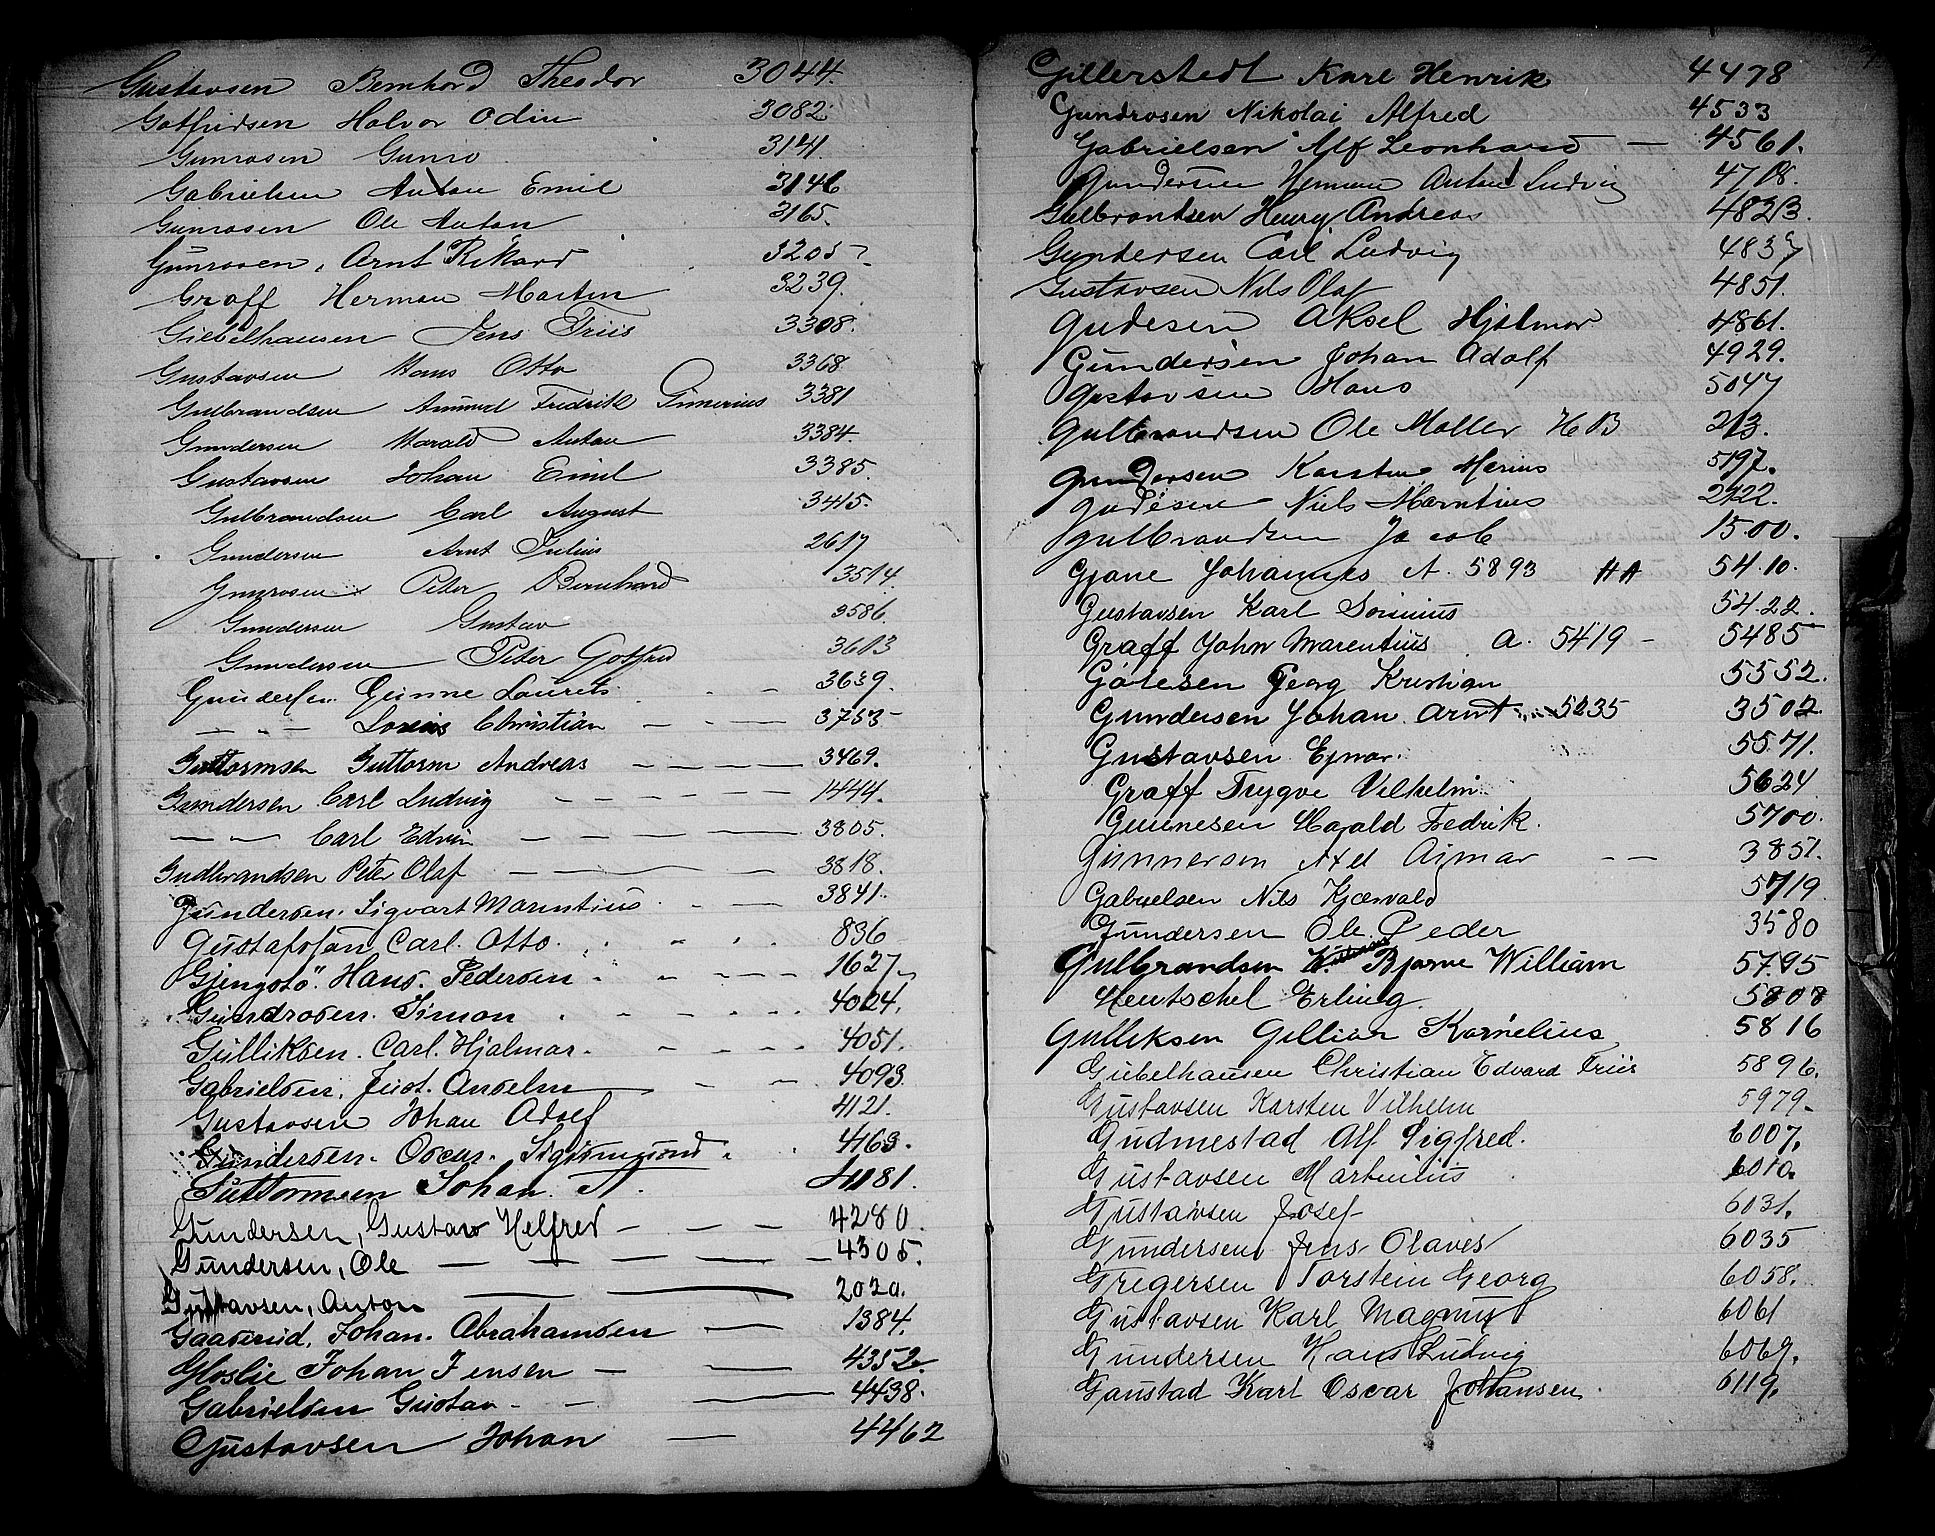 Gustavsen Bernhard Theodor 3044.
Gotfridsen Halvor Odin 3082
Gunrosen Gunro 3141
Gabrielsen Anton Emil 3146
Gunrosen Ole Anton 3165.
Gunrosen, Arnt Rikard 3205
Graff Herman Martin 3239.
Giebelhausen Jens Friis 3308.
Gustavsen Hans Otto 3368
Gulbrandsen Amund Fredrik Ginerius 3381
Gundersen Harald Anton 3384.
Gustavsen Johan Emil 3385.
Gulbrandsen Carl August 3415.
Gundersen Arnt Julius 2617
Gunrosen Peter Bernhard 3514
Gundersen Gustav 3586.
Gundersen Peter Gotfred 3613
Gundersen Gunne Laurits 3639.
— - — Louis Christian — - — 3753
Guttormsen Guttorm Andreas — — — — 3469.
Gundersen Carl Ludvig — — — — 1444.
— — Carl Edvin — — — — 3805.
Gudbrandsen Peter Olaf — — — 3818.
Gundersen. Sigvart Marentius 3841.
Gustafsfan Carl. Otto. 836
Gjengstö. Hans. Pedersen 1627
Gundrosen. Simon 4024.
Gulliksen. Carl. Hjalmar. 4051.
Gabrielsen, Just. Anselm 4093
Gustavsen Johan Adolf 4121.
Gundersen. Oscar. Sigismund 4163.
Guttormsen Johan. A. 4181.
Gundersen, Gustav Helfred — — — 4280.
Gundersen, Ole — — — — 4305.
Gustavsen, Anton 2020.
Gaaserud, Johan. Abrahamsen — — 1384.
Gloslie Johan Jensen — — 4352
Gabrielsen Gustav - — — 4438.
Gustavsen Johan — 4462
Gillerstedt Karl Henrik 4478
Gundrosen Nikolai Alfred 4533
Gabrielsen Alf Leonhard — 4561.
Gundersen Herman Anton Ludvig 4718.
Gulbrandsen Henry Andreas 4823.
Gundersen Carl Ludvig 4837
Gustavsen Nils Olaf 4851.
Gudesen Aksel Hjalmar 4861.
Gundersen Johan Adolf 4929.
Gustavsen Hans 5047
Gulbrandsen Ole Møller H B 213.
Gundersen Karsten Marius 5197.
Gudesen Niels Marntius 2722.
Gulbrandsen Jacob 1500.
Gjane Johannes A. 5893 H A 54.10.
Gustavsen Karl Sorinius 54.22.
Graff John Marentius A. 5419 — 5485
Götesen Georg Kristian 5552.
Gundersen Johan Arnt 5235 3502
Gustavsen Ejnar. 5571.
Graff Trygve Vilhelm 5624
Gunnesen Harald Fredrik. 5700.
Gunnersen Axel Ajmar — — 3851.
Gabrielsen Nils Kjærvald 5719
Gundersen Ole Peder 3580
Gulbrandsen K. Bjarne William 5795
Hentschel Erling 5808
Gulliksen Gilliar Kornelius 5816
Giebelhausen Christian Edvard Friis 5896.
Gustavsen Karsten Vilhelm 5979.
Gudmestad Alf Sigfred. 6007.
Gustavsen Martinius 6010.
Gustavsen Josef 6031.
Gundersen Jens Olaves 6035
Gregersen Torstein Georg 6058.
Gustavsen Karl Magnus 6061
Gundersen Hans Ludvig 6069.
Gaustad Karl Oscar Johansen 6119.